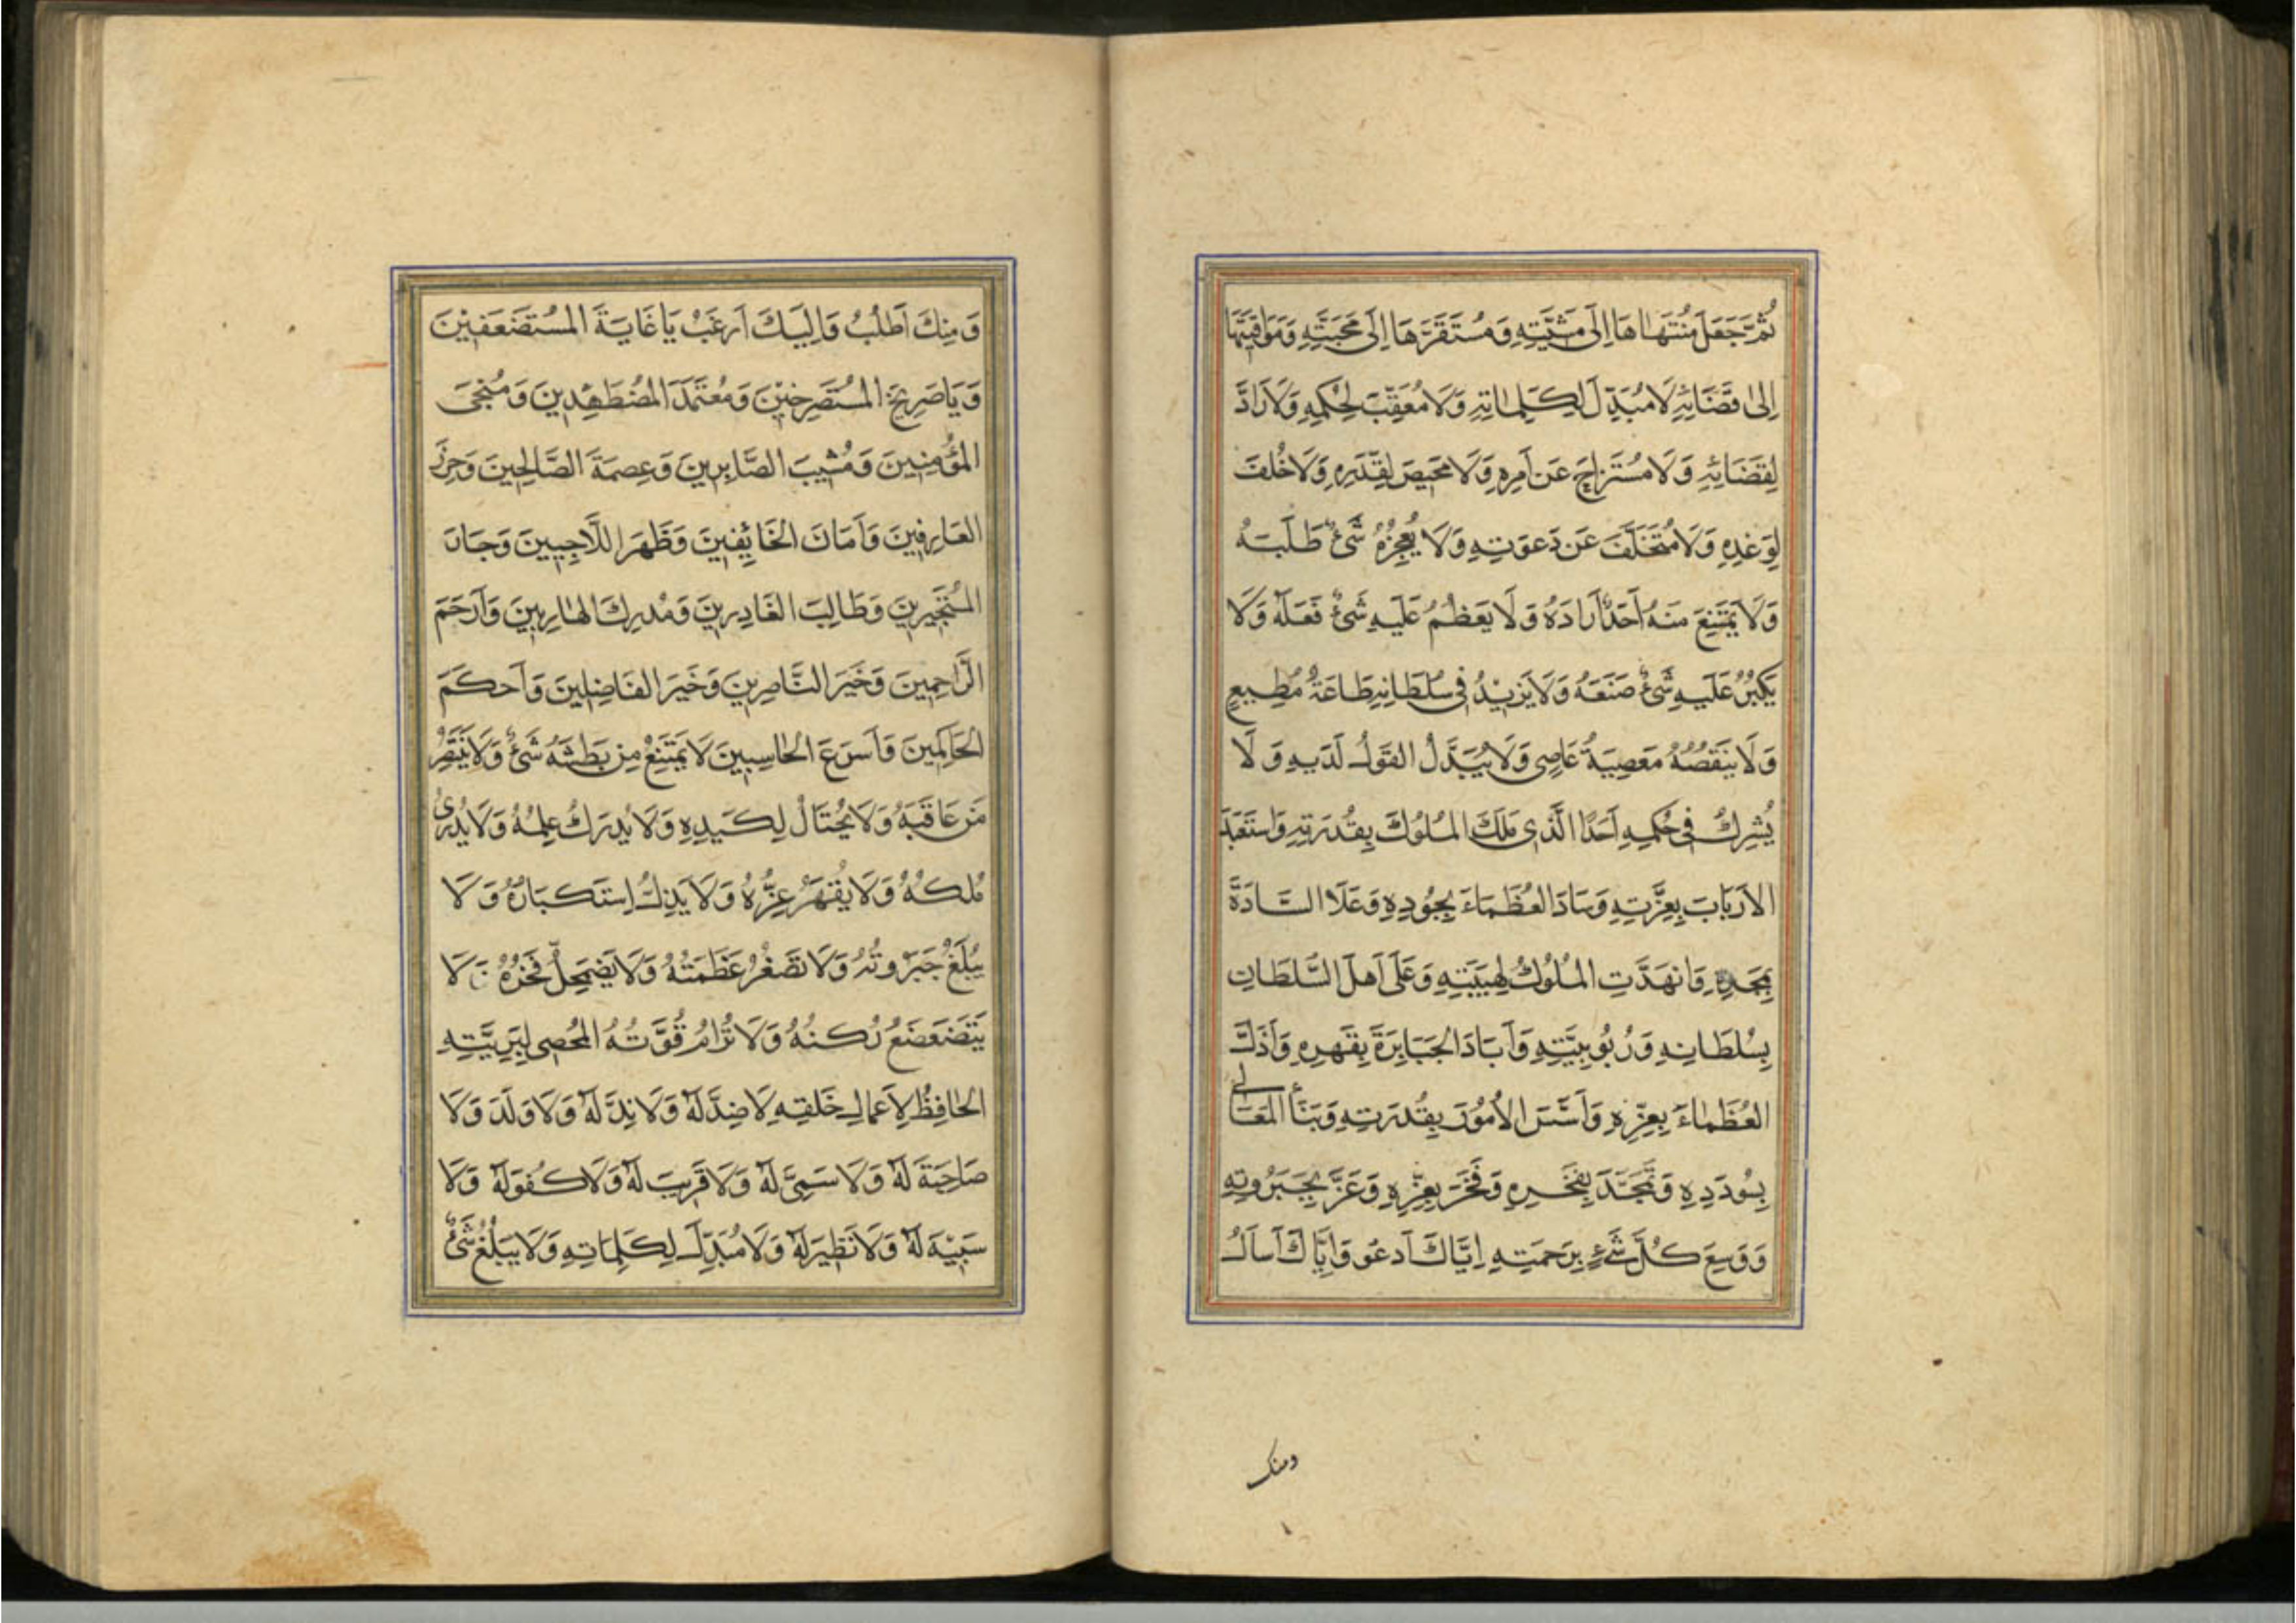 ثُمَّ جَعَلَ مُنْتَهَاهَا إِلَى مَشِيَّتِهِ وَمُسْتَقَرَّهَا إِلَى مَحَبَّتِهِ وَمَوَاقِيتَهَا
إِلَى قَضَائِهِ لَا مُبَدِّلَ لِكَلِمَاتِهِ وَلَا مُعَقِّبَ لِحُكْمِهِ وَلَا رَادَّ
لِقَضَائِهِ وَلَا مُسْتَزَاحَ عَنْ أَمْرِهِ وَلَا مَحِيصَ لِقَدَرِهِ وَلَا خُلْفَ
لِوَعْدِهِ وَلَا مُتَخَلِّفَ عَنْ دَعْوَتِهِ وَلَا يُعْجِزُهُ شَيْءٌ طَلَبَهُ
وَلَا يَمْتَنِعُ مِنْهُ أَحَدٌ أَرَادَهُ وَلَا يَعْظُمُ عَلَيْهِ شَيْءٌ فَعَلَهُ وَلَا
يَكْبُرُ عَلَيْهِ شَيْءٌ صَنَعَهُ وَلَا يَزِيدُ فِي سُلْطَانِهِ طَاعَةُ مُطِيعٍ
وَلَا يَنْقُصُهُ مَعْصِيَةُ عَاصِي وَلَا يُبَدَّلُ الْقَوْلُ لَدَيْهِ وَلَا
يُشْرِكُ فِي حُكْمِهِ أَحَدًا الَّذِي مَلَكَ الْمُلُوكَ بِقُدْرَتِهِ وَاسْتَعْبَدَ
الْأَرْبَابَ بِعِزَّتِهِ وَسَادَ الْعُظَمَاءَ بِجُودِهِ وَعَلَا السَّادَةَ
بِمَجْدِهِ وَانْهَدَّتِ الْمُلُوكُ لِهَيْبَتِهِ وَعَلَى أَهْلَ السُّلْطَانِ
بِسُلْطَانِهِ وَرُبُوبِيَّتِهِ وَأَبَادَ الْجَبَابِرَةَ بِقَهْرِهِ وَأَذَلَّ
الْعُظَمَاءَ بِعِزِّهِ وَأَسَّسَ الْأُمُورَ بِقُدْرَتِهِ وَبَنَا الْمَعَالِي
بِسُودَدِهِ وَتَمَجَّدَ بِفَخْرِهِ وَفَخَرَ بِعِزِّهِ وَعَزَّ بِجَبَرُوتِهِ
وَوَسِعَ كُلَّ شَيْءٍ بِرَحْمَتِهِ إِيَّاكَ أَدْعُو وَإِيَّاكَ أَسْأَلُ
ومنك
وَمِنْكَ أَطْلُبُ وَإِلَيْكَ أَرْغَبُ يَا غَايَةَ الْمُسْتَضْعَفِينَ
وَيَا صَرِيخَ الْمُسْتَصْرِخِينَ وَمُعْتَمَدَ الْمُضْطَهَدِينَ وَمُنْجِيَ
الْمُؤْمِنِينَ وَمُثِيبَ الصَّابِرِينَ وَعِصْمَةَ الصَّالِحِينَ وَحِرْزَ
الْعَارِفِينَ وَأَمَانَ الْخَائِفِينَ وَظَهْرَ اللَّاجِيينَ وَجَارَ
الْمُسْتَجِيرِينَ وَطَالِبَ الْغَادِرِينَ وَمُدْرِكَ الْهَارِبِينَ وَأَرْحَمَ
الرَّاحِمِينَ وَخَيْرَ النَّاصِرِينَ وَخَيْرَ الْفَاصِلِينَ وَأَحْكَمَ
الْحَاكِمِينَ وَأَسْرَعَ الْحَاسِبِينَ لَا يَمْتَنِعُ مِنْ بَطْشِهِ شَيْءٌ وَلَا يَنْتَصِرُ
مَنْ عَاقَبَهُ وَلَا يُحْتَالُ لِكَيْدِهِ وَلَا يُدْرَكُ عِلْمُهُ وَلَا يُدْرَىُ
مُلْكُهُ وَلَا يُقْهَرُ عِزُّهُ وَلَا يَذِلُّ اسْتِكْبَارُهُ وَلَا
يُبْلَغُ جَبَرُوتُهُ وَلَا تَصْغُرُ عَظَمَتُهُ وَلَا يَضْمَحِلُّ فَخْرُهُ وَلَا
يَتَضَعْضَعُ رُكْنُهُ وَلَا تُرَامُ قُوَّتُهُ الْمُحْصِي لِبَرِيَّتِهِ
الْحَافِظُ لِأَعْمَالِ خَلْقِهِ لَا ضِدَّ لَهُ وَلَا نِدَّ لَهُ وَلَا وَلَدَ وَلَا
صَاحِبَةَ لَهُ وَلَا سَمِيَّ لَهُ وَلَا قَرِيبَ لَهُ وَلَا كُفْوَ لَهُ وَلَا
شَبِيهَ لَهُ وَلَا نَظِيرَ لَهُ وَلَا مُبَدِّلَ لِكَلِمَاتِهِ وَلَا يَبْلُغُ شَيْءٌ